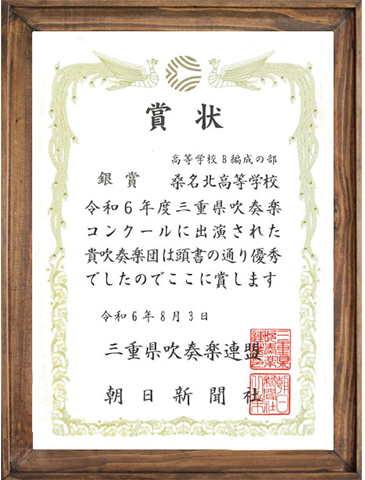 賞状
高等学校B編成の部
銀賞 桑名北高等学校
令和6年度三重県吹奏楽
コンクールに出演された
貴吹奏楽団は頭書の通り優秀
でしたのでここに賞します
令和6年8月3日
三重県吹奏楽連盟
朝日新聞社